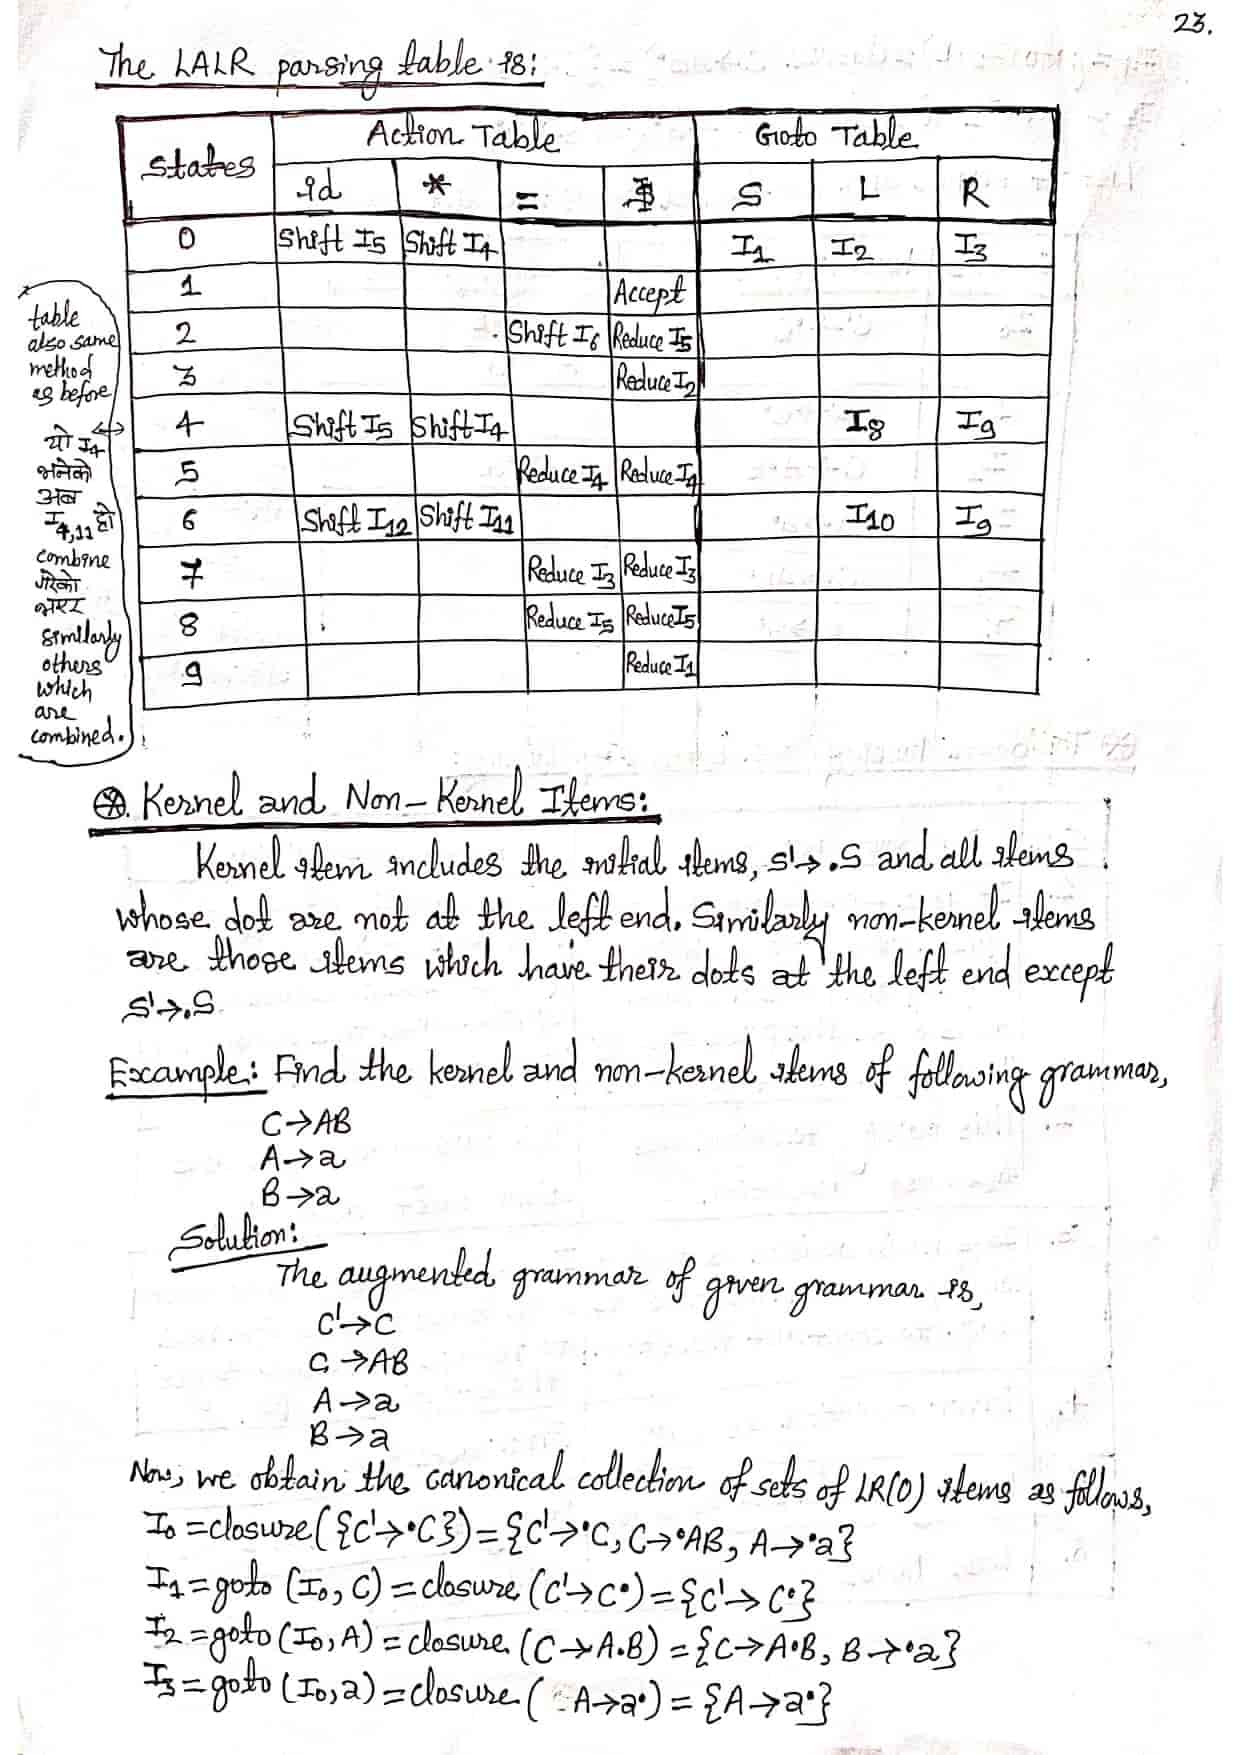 23.
The LALR parsing table is:
States Action Table Goto Table
id * = $ S L R
0 Shift I5 Shift I4 I1 I2 I3
1 Accept
2 Shift I6 Reduce I5
3 Reduce I2
4 Shift I5 Shift I4 I8 I9
5 Reduce I4 Reduce I4
6 Shift I12 Shift I11 I10 I9
7 Reduce I3 Reduce I3
8 Reduce I5 Reduce I5
9 Reduce I1
table
also same
method
as before
यो I4
भनेको
अब
I4,11 हो
combine
गरेको
भएर
similarly
others
which
are
combined.
⊛. Kernel and Non-Kernel Items:
Kernel item includes the initial items, S'→.S and all items
whose dot are not at the left end. Similarly non-kernel items
are those items which have their dots at the left end except
S'→.S.
Example: Find the kernel and non-kernel items of following grammar,
C→AB
A→a
B→a
Solution:
The augmented grammar of given grammar is,
C'→C
C→AB
A→a
B→a
Now, we obtain the canonical collection of sets of LR(0) items as follows,
I0 = closure ({C'→•C}) = {C'→•C, C→•AB, A→•a}
I1 = goto (I0, C) = closure (C'→C•) = {C'→C•}
I2 = goto (I0, A) = closure (C→A.B) = {C→A•B, B→•a}
I3 = goto (I0, a) = closure ( A→a•) = {A→a•}